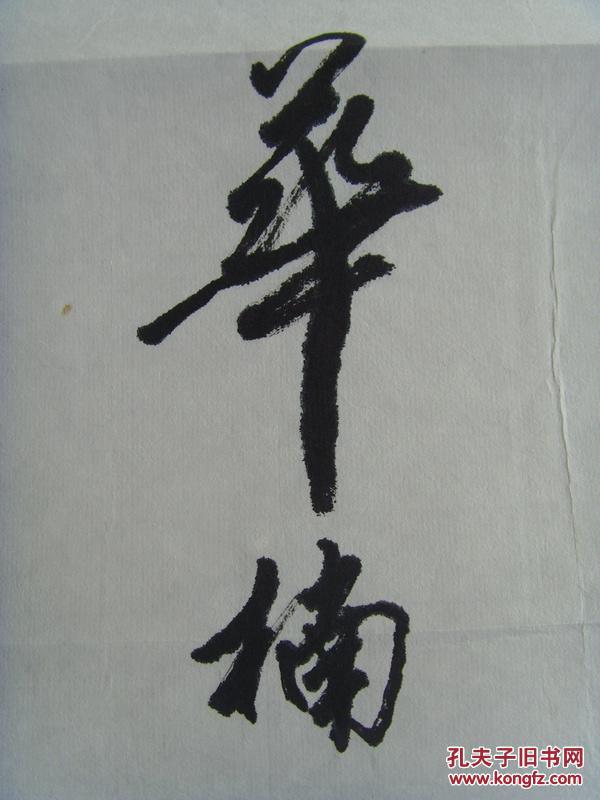 華
楠
孔夫子旧书网
www.kongfz.com